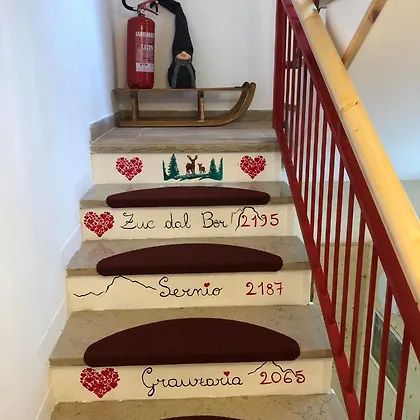 Zuc dal Bor 2195
Sernio 2187
Grauzaria 2065